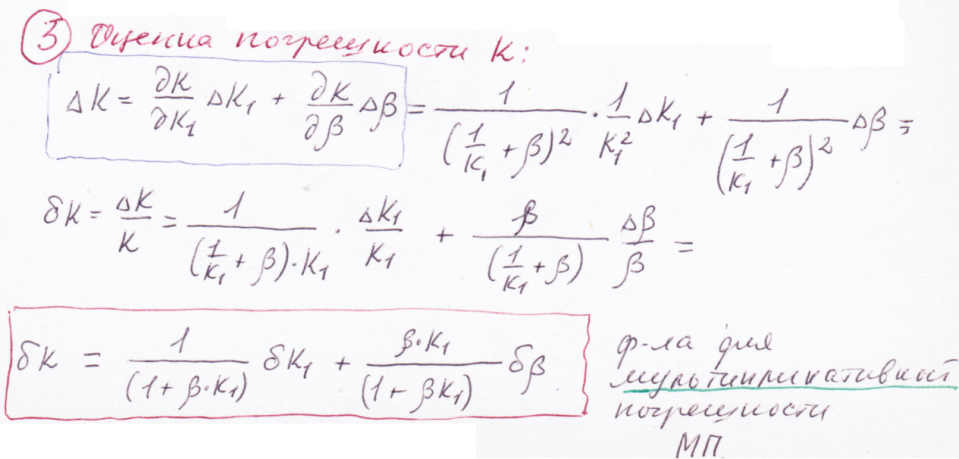 ③ Оценка погрешности K:
ΔK = ∂K/∂K₁ ΔK₁ + ∂K/∂β Δβ = 1/(1/K₁ + β)² · 1/K₁² ΔK₁ + 1/(1/K₁ + β)² Δβ =
δK = ΔK/K = 1/((1/K₁ + β)·K₁) · ΔK₁/K₁ + β/(1/K₁ + β) Δβ/β =
δK = 1/(1 + β·K₁) δK₁ + β·K₁/(1 + βK₁) δβ
ф-ла для
мультипликативной
погрешности
МП.